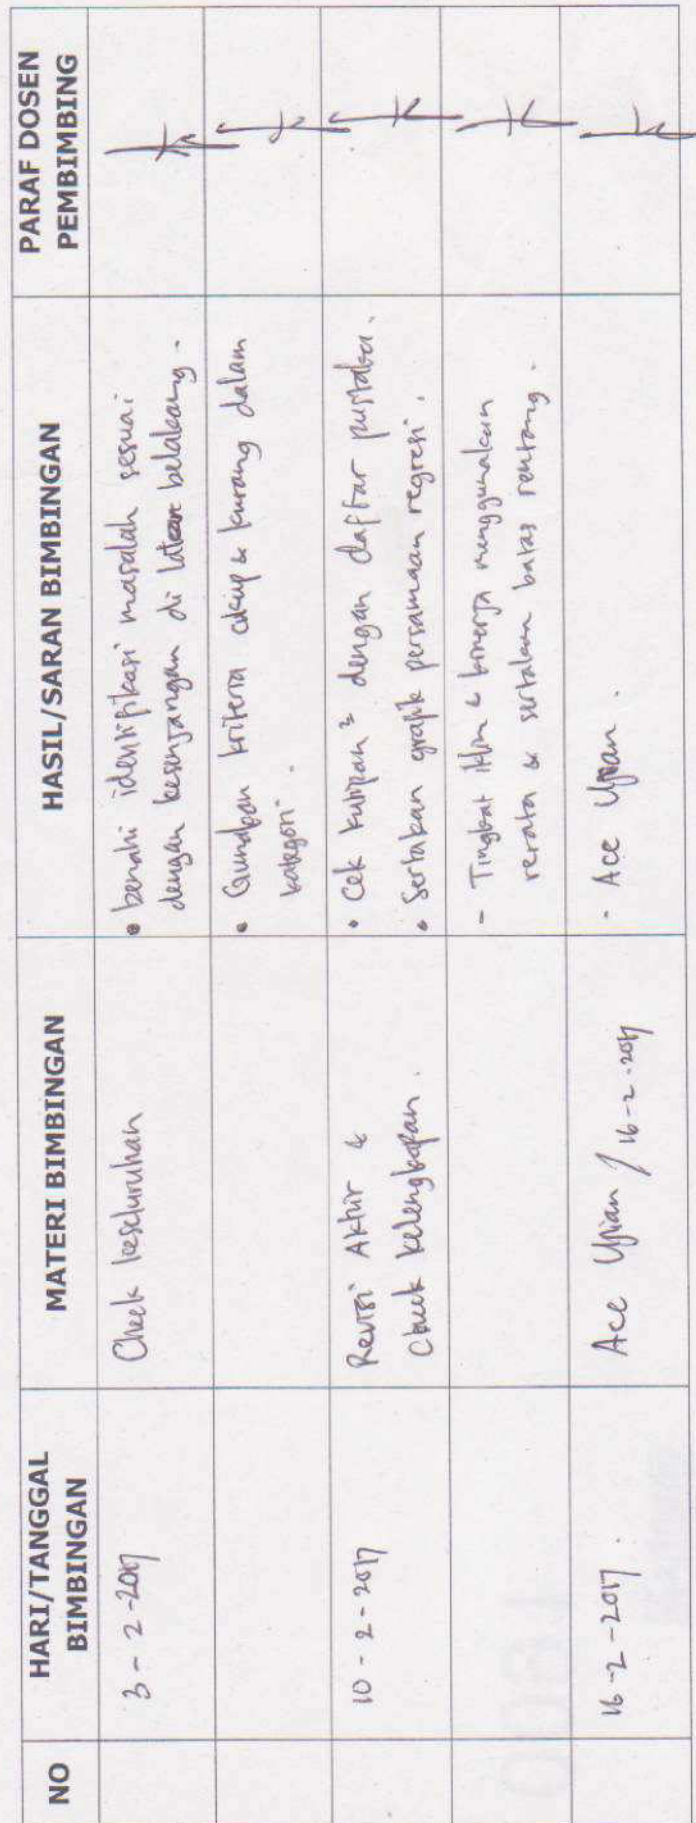 NO
HARI/TANGGAL
BIMBINGAN
MATERI BIMBINGAN
HASIL/SARAN BIMBINGAN
PARAF DOSEN
PEMBIMBING
3 - 2 - 2017
Check keseluruhan
• benahi identifikasi masalah sesuai
dengan kesenjangan di latar belakang.
• Gunakan kriteria cukup & kurang dalam
kategori.
10 - 2 - 2017
Revisi Akhir &
Check kelengkapan.
• Cek kutipan² dengan daftar pustaka.
• Sertakan grafik persamaan regresi.
- Tingkat iklim & kinerja menggunakan
rerata & sertakan batas rentang.
16 - 2 - 2017.
Ace Ujian / 16 - 2 - 2017
- Ace Ujian.